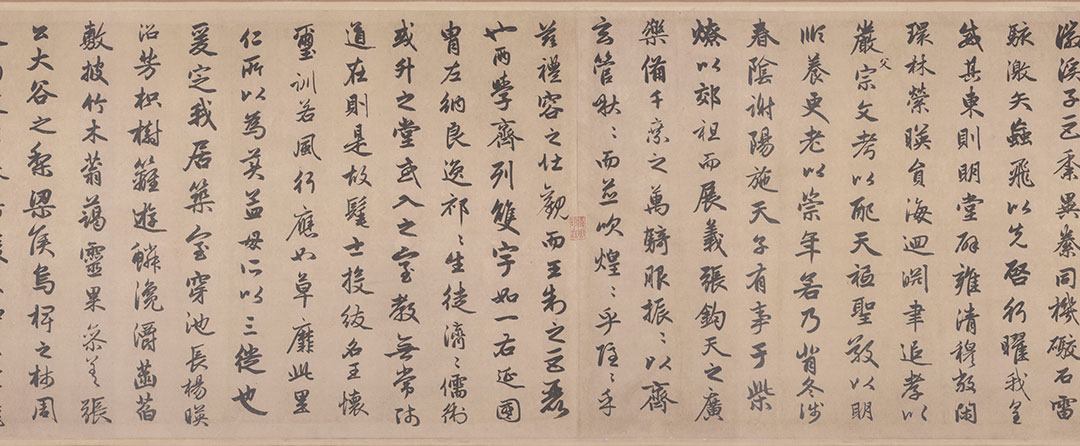 溪子巨黍異絭同機礮石雷
駭激矢蝱飛以先啓行曜我皇
威其東則明堂辟雍清穆敞閑
環林縈暎員海迴淵聿追孝以
嚴父宗文考以配天祗聖敬以明
順養更老以崇年若乃背冬涉
春陰謝陽施天子有事于柴
燎以郊祖而展義張鈞天之廣
樂備千乘之萬騎服振〻以齊
玄管啾〻而並吹煌〻乎隱〻乎
茲禮容之壯觀而王制之巨麗
也兩學齊列雙宇如一右延國
胄左納良逸祁〻生徒濟〻儒術
或升之堂或入之室教無常師
道在則是故髦士投紱名王懷
璽訓若風行應如草靡此里
仁所以為美孟母所以三徙也
爰定我居築室穿池長楊暎
沼芳枳樹籬遊鱗瀺灂菡萏
敷披竹木蓊藹靈果參差張
公大谷之梨梁侯烏椑之柿周